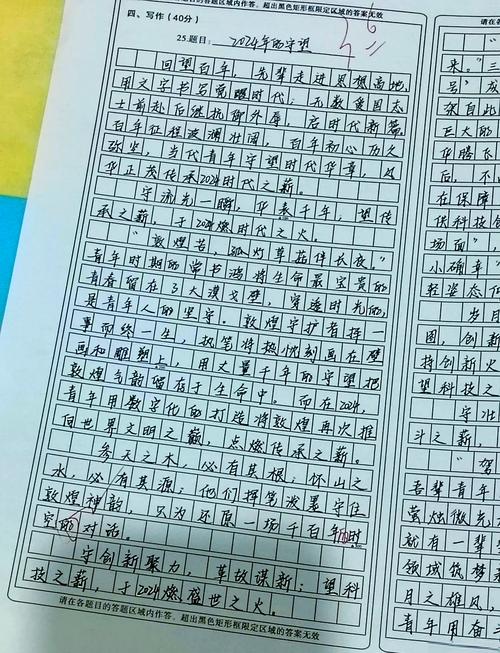 各题目的答题区域内作答,超出黑色矩形框限定区域的答案无效
四、写作(40分)
25.题目: 2024年的守望
36
回望百年,先辈走进思想高地,
用文字书写觉醒时代;无数爱国志
士前赴后继抗御外辱,启时代新篇。
百年征程波澜壮阔,百年初心历久
弥坚,当代青年守望时代华章,风
华正茂传承2024时代之薪。
守流光一瞬,华泰千年,望传
承之薪,于2024燃时代之火。
“敦煌苦,孤灯草菇伴长夜。”
青年时期的常书鸿将生命最宝贵的
青春留在了大漠戈壁,穿透时光的,
是青年人的坚守。敦煌守护者择一
事而终一生,执笔将热忱刻画在壁
画和雕塑上,用丈量千年的守望把
敦煌气韵留在于生命中。而在2024,
青年用数字化的打造将敦煌再次推
向世界文明之巅,点燃传承之薪。
参天之木,必有其根;怀山之
水,必有其源;他们挥笔泼墨守住
敦煌神韵,只为还原一场千百年的时
空的对话。
守创新聚力,革故谋新;望科
技之薪,于2024燃盛世之火。
请在各题目的答题区域内作答,超出黑色矩形框限定区域的答案无效
请
来。“三
号”成
架自此
巨大的
华腾飞
后,不
在保障
供科技
场面”,
小确幸”
轻姿态
岁月
图,创新
持创新火
望科技之
守
斗之薪,
“驾
吾辈青年
萤烛微光
就有一
领域筑梦
月之雄风,
青年用奋